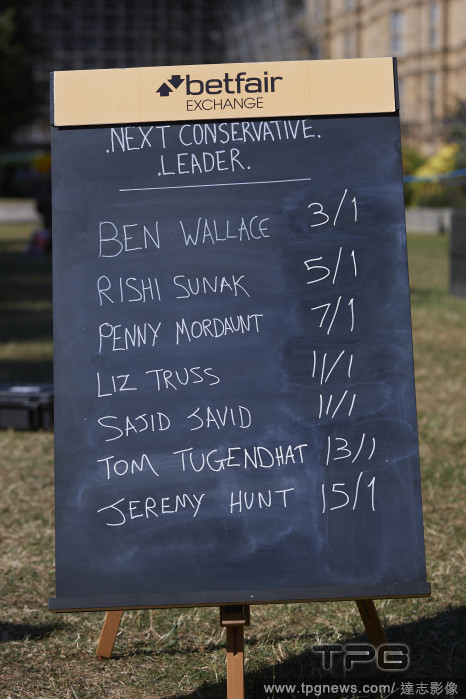 betfair
EXCHANGE
.NEXT CONSERVATIVE.
.LEADER.
BEN WALLACE 3/1
RISHI SUNAK 5/1
PENNY MORDAUNT 7/1
LIZ TRUSS 11/1
SAJID JAVID 11/1
TOM TUGENDHAT 13/1
JEREMY HUNT 15/1
TPG
www.tpgnews.com/達志影像